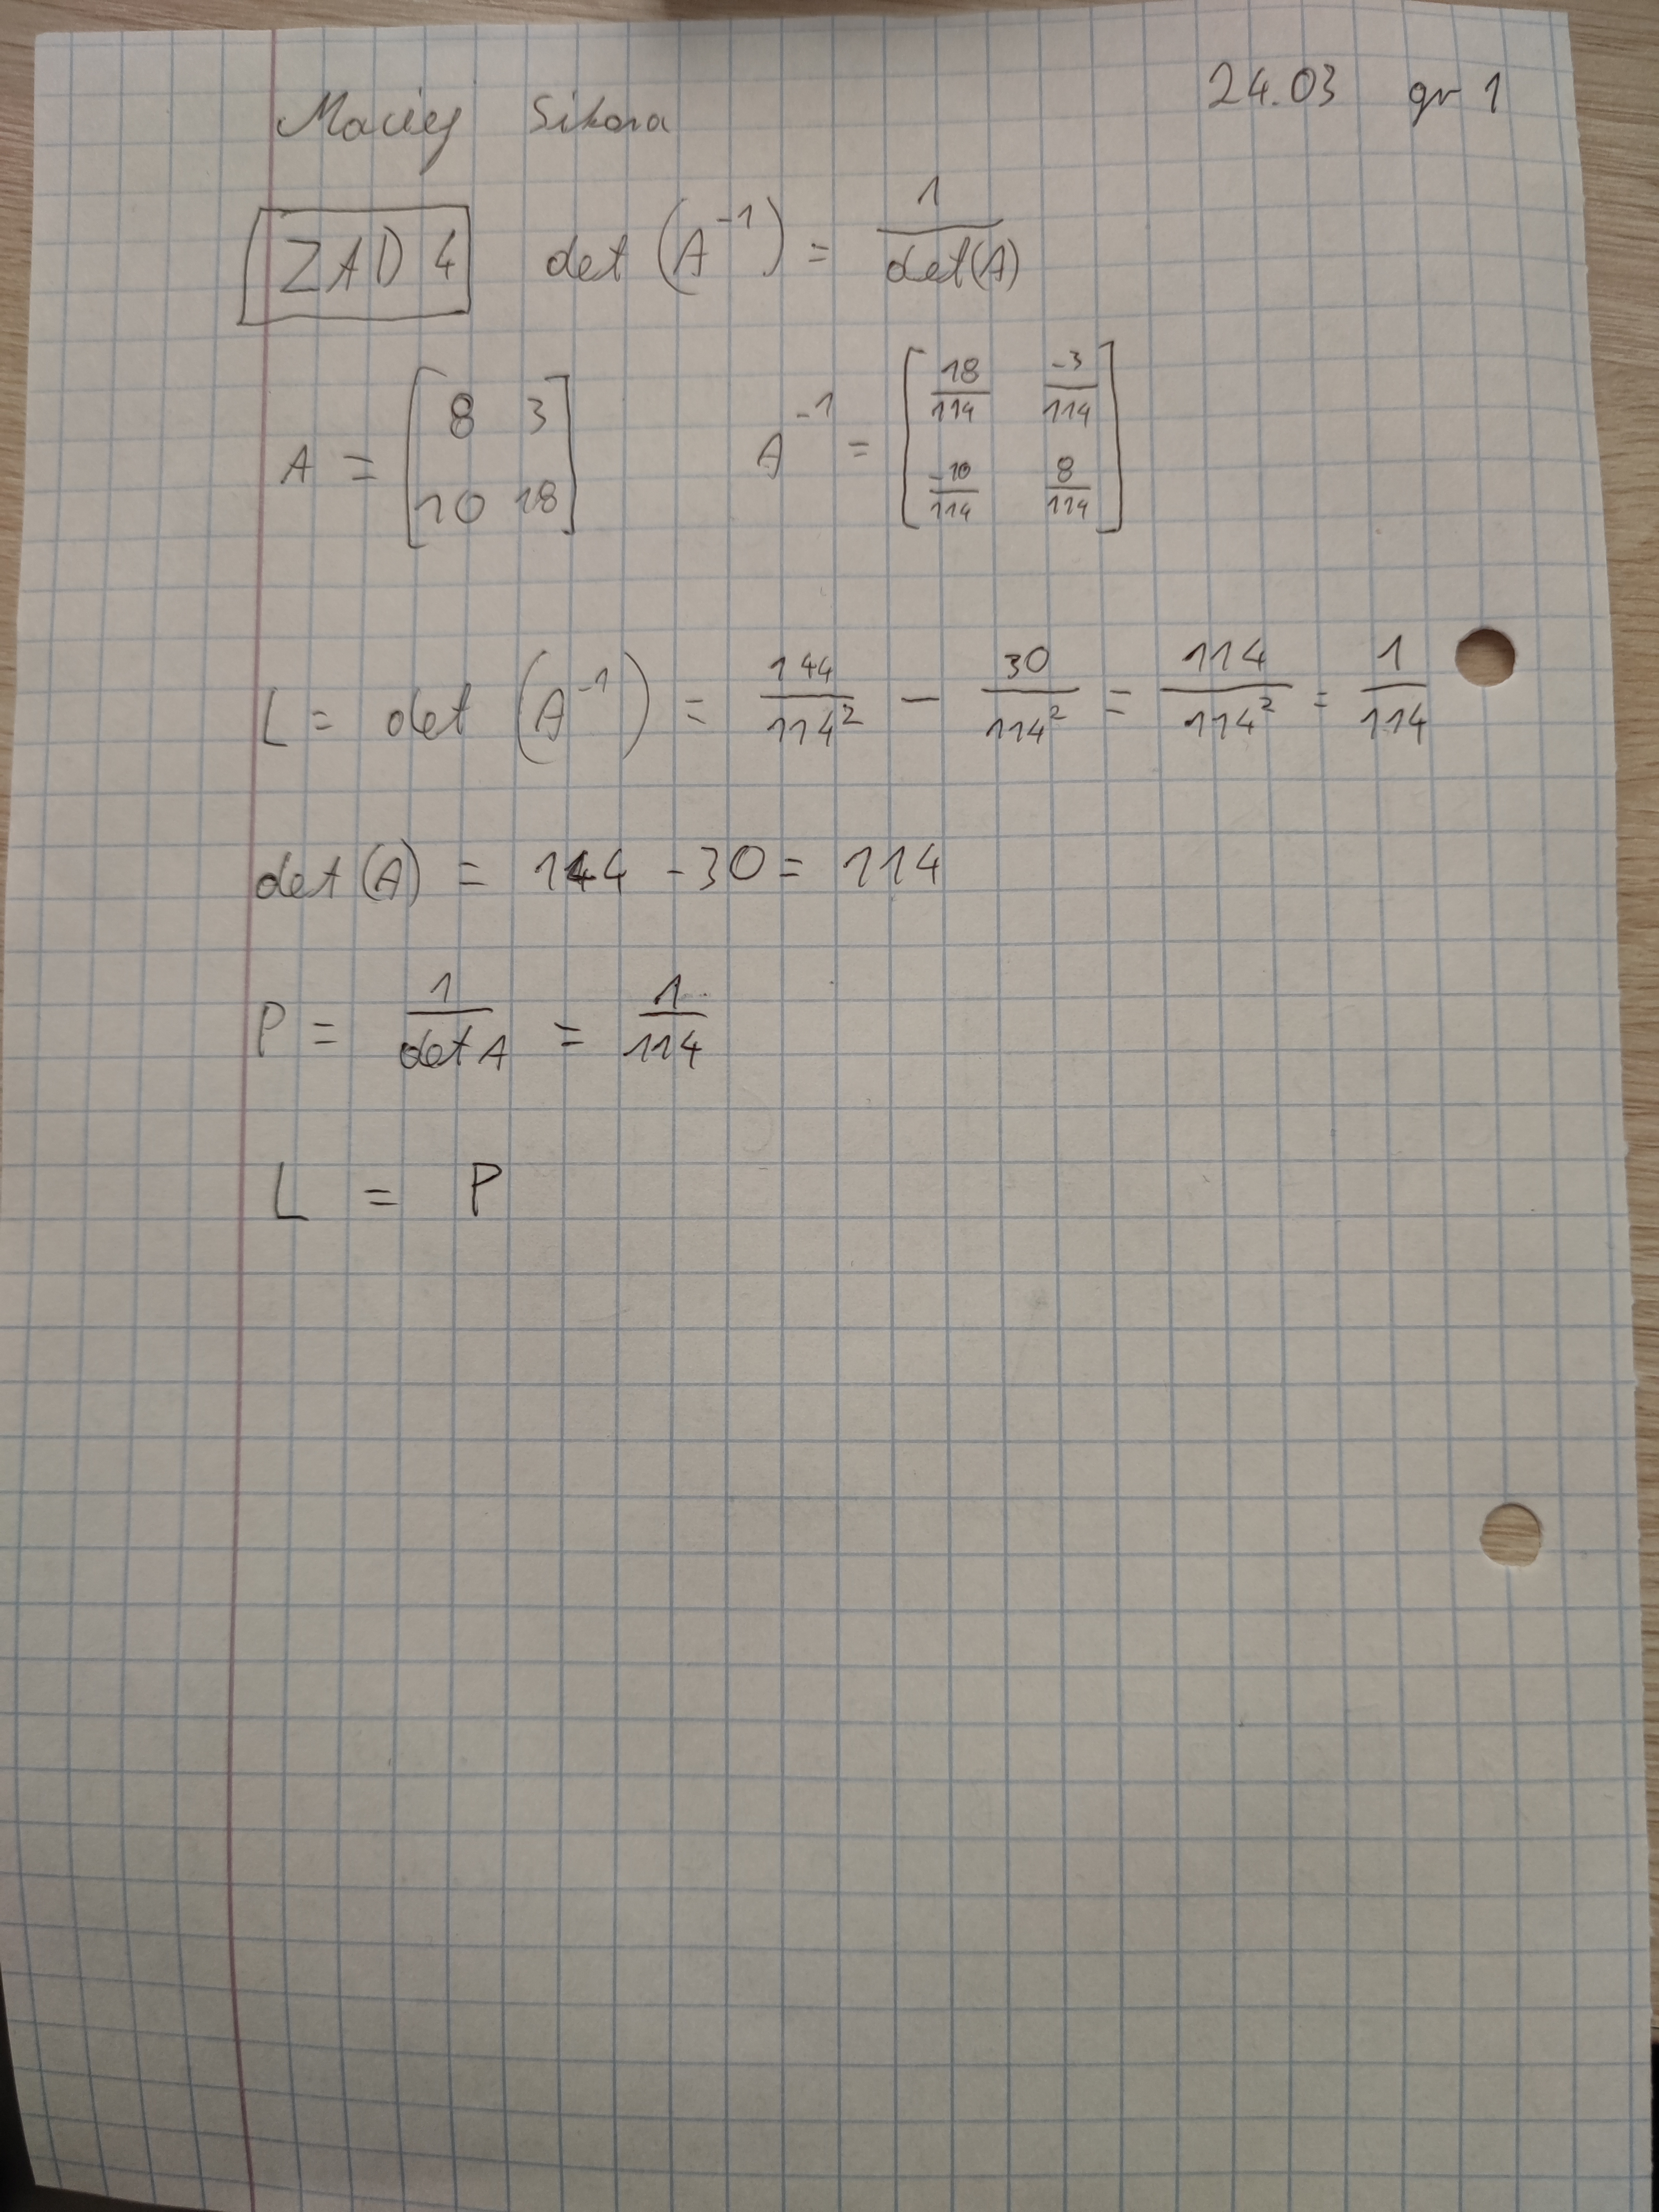 Maciej Sikora 24.03 gr 1
ZAD 4 det (A^-1) = 1/det(A)
A = [8 3; 10 18] A^-1 = [18/114 -3/114; -10/114 8/114]
L = det (A^-1) = 144/114^2 - 30/114^2 = 114/114^2 = 1/114
det(A) = 144 - 30 = 114
P = 1/det A = 1/114
L = P